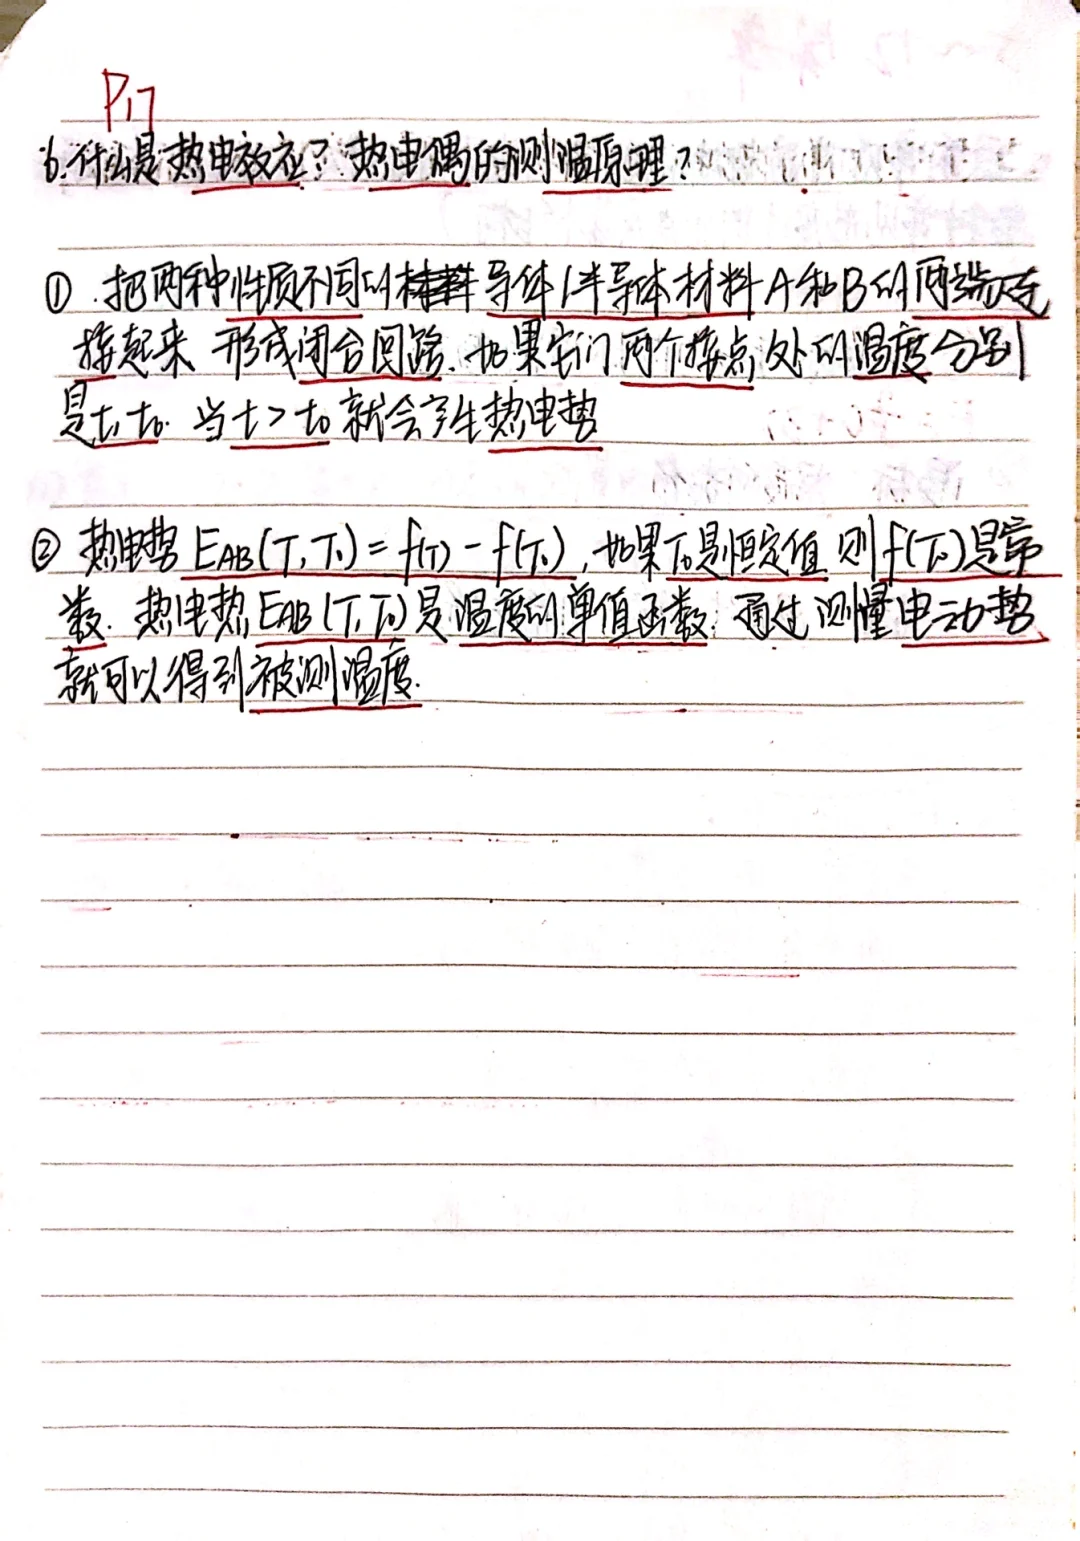 P17
6.什么是热电效应？热电偶的测温原理？
①.把两种性质不同的导体/半导体材料A和B的两端连
接起来 形成闭合回路.如果它们两个接点处的温度分别
是t,t₀.当t>t₀就会产生热电势
②热电势E_AB(T,T₀)=f(T)-f(T₀),如果T₀是恒定值 则f(T₀)是常
数.热电热E_AB(T,T₀)是温度的单值函数.通过测懂电动势
就可以得到被测温度.